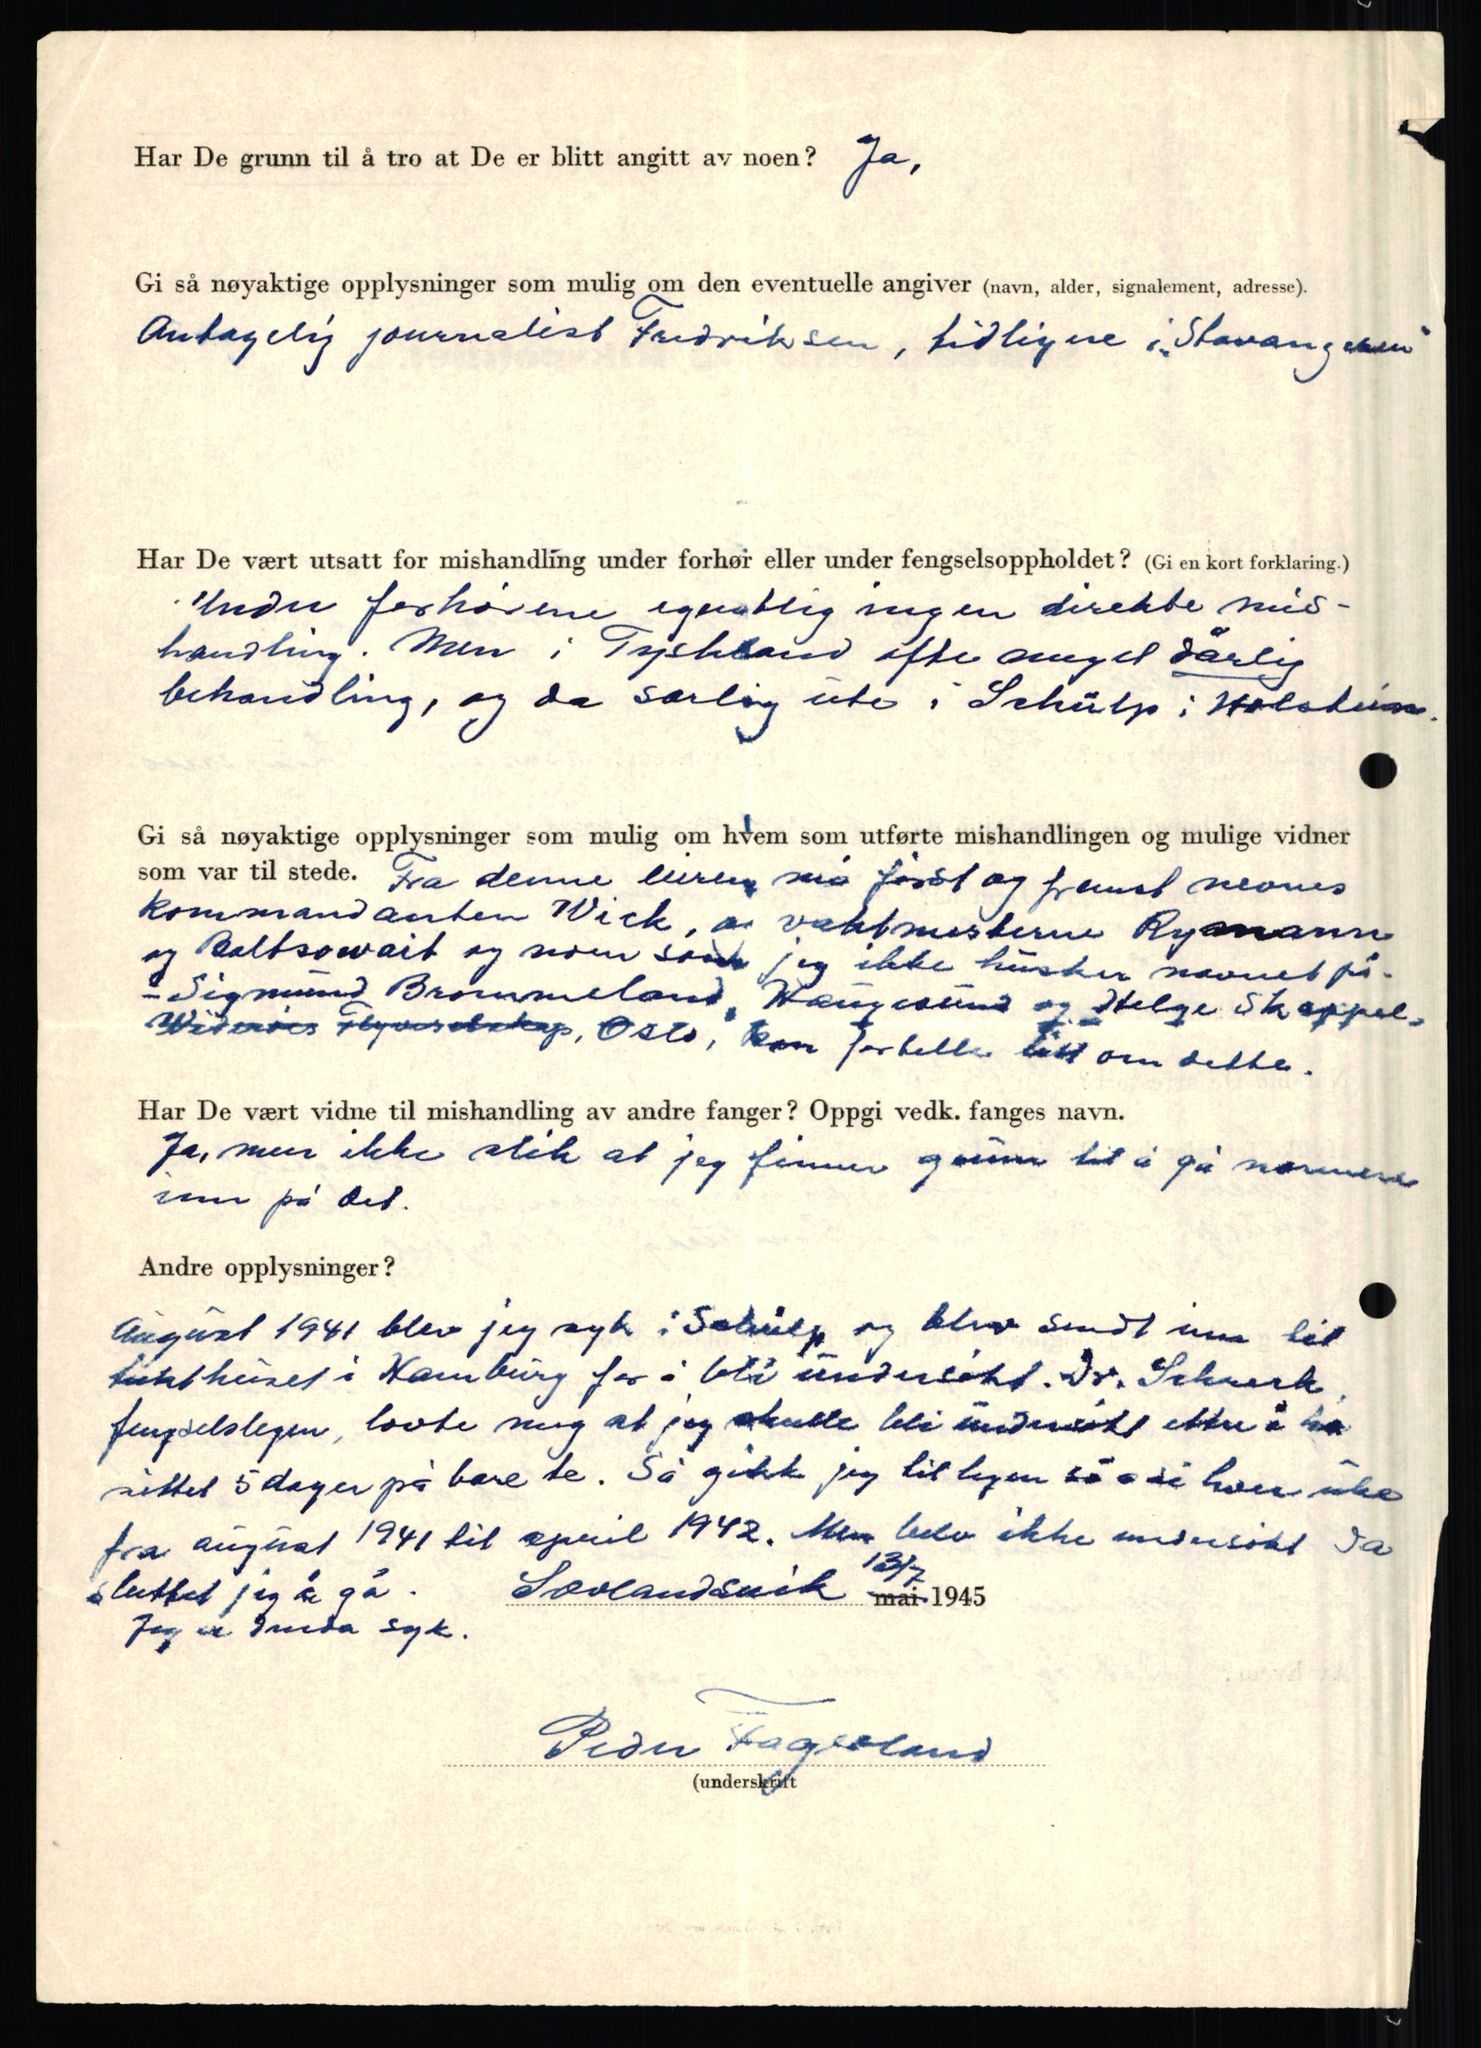 Har De grunn til å tro at De er blitt angitt av noen? Ja,
Gi så nøyaktige opplysninger som mulig om den eventuelle angiver (navn, alder, signalement, adresse).
Antagelig journalist Fredriksen, tidligere i „Stavangeren"
Har De vært utsatt for mishandling under forhør eller under fengselsoppholdet? (Gi en kort forklaring.)
Under forhørene egentlig ingen direkte mis-
handling. Men i Tyskland ofte meget dårlig
behandling, og da særlig ute i Schülp i Holstein.
Gi så nøyaktige opplysninger som mulig om hvem som utførte mishandlingen og mulige vidner
som var til stede. Fra denne leiren må først og fremst nevnes
kommandanten Wick, vaktmesterne Rymann
og Baltsowait og noen som jeg ikke husker navnet på.
- Sigmund Brommeland, Haugesund og Helge Skappel,
Widerøes Flyveselskap, Oslo, kan fortelle litt om dette.
Har De vært vidne til mishandling av andre fanger? Oppgi vedk. fanges navn.
Ja, men ikke slik at jeg finner grunn til å gå nærmere
inn på det.
Andre opplysninger?
August 1941 blev jeg syk i Schülp og blev sendt inn til
tukthuset i Hamburg for å bli undersøkt. Dr. Schnerk,
fengselslegen, lovte meg at jeg skulle bli undersøkt etter å ha
sittet 5 dager på bare te. Så gikk jeg til legen så å si hver uke
fra august 1941 til april 1942. Men blev ikke undersøkt da
sluttet jeg å gå. Sævlandsvik 13/7 mai 1945
Jeg er enda syk.
Peder Fagerland
(underskrift